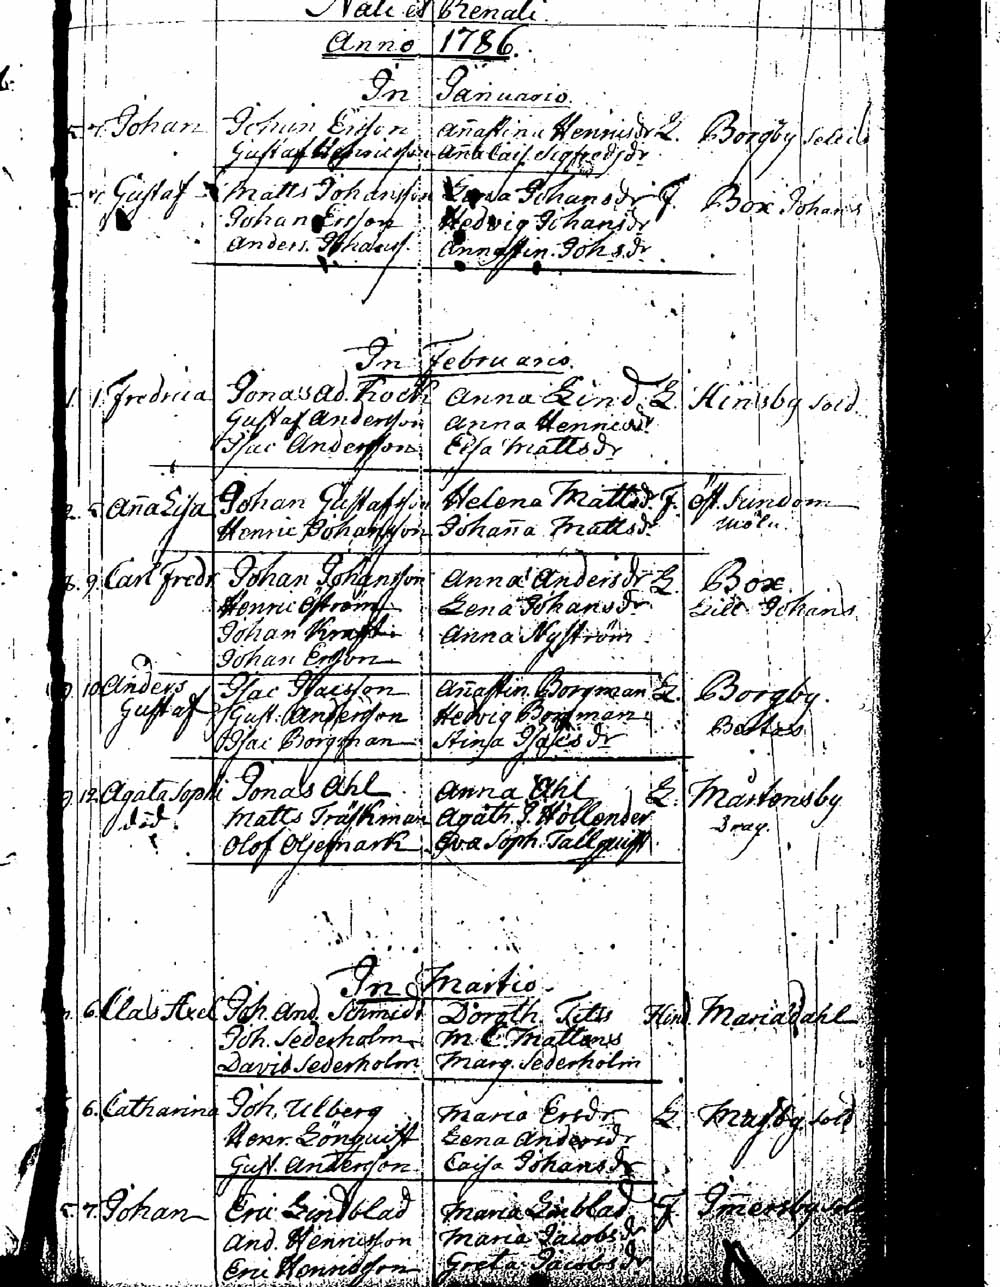 Nati et Renati
Anno 1786.
In Januario.
7. Johan Johan Ersson Annastina Henricsdr L. Borgby
Gustaf Henricsson Anna Cais. Sigfredsdr
Gustaf Matts Johansson Lena Johansdr F. Box Johans
Johan Ersson Hedvig Johansdr
Anders Johanss. Annastin. Johsdr
In Februario.
1. 1. Fredrica Jonas Ad. Koch Anna Lind L. Hinsby sold
Gustaf Andersson Anna Henricsdr
Isac Andersson Lisa Mattsdr
2. 5. Anna Lisa Johan Gustafsson Helena Mattsd. F. Öst. Sundom
Henric Johansson Johanna Mattsdr
8. 9. Carl Fredr. Johan Johansson Anna Andersdr L. Box
Henric Öström Lena Johansdr Lill Johans
Johan Kraft Anna Nyström
Johan Ersson
10. Anders Isac Isacsson Annastin. Borgman L. Borgby.
Gustaf Gust. Andersson Hedvig Borgman
Isac Borgman Stina Isacsdr
9. 12. Agata Sophi Jonas Ahl Anna Ahl L. Mårtensby
död. Matts Träskman Agath. S. Hollender drag.
Olof Oljemark Eva Soph. Tallquist
In Martio.
6. Clas Axel Joh. And. Schmidt Doroth. Titts Hind. Mariædahl
Joh. Sederholm M. C. Mattens
David Sederholm Marg. Sederholm
6. Catharina Joh. Ulberg Maria Ersdr L. Masby sold
Henr. Lönquist Lena Andersdr
Gust. Andersson Caisa Johansdr
5. 7. Johan Eric Lindblad Maria Linblad F. Immersby
And. Henricsson Maria Jacobsdr
Eric Henricsson Greta Jacobsdr